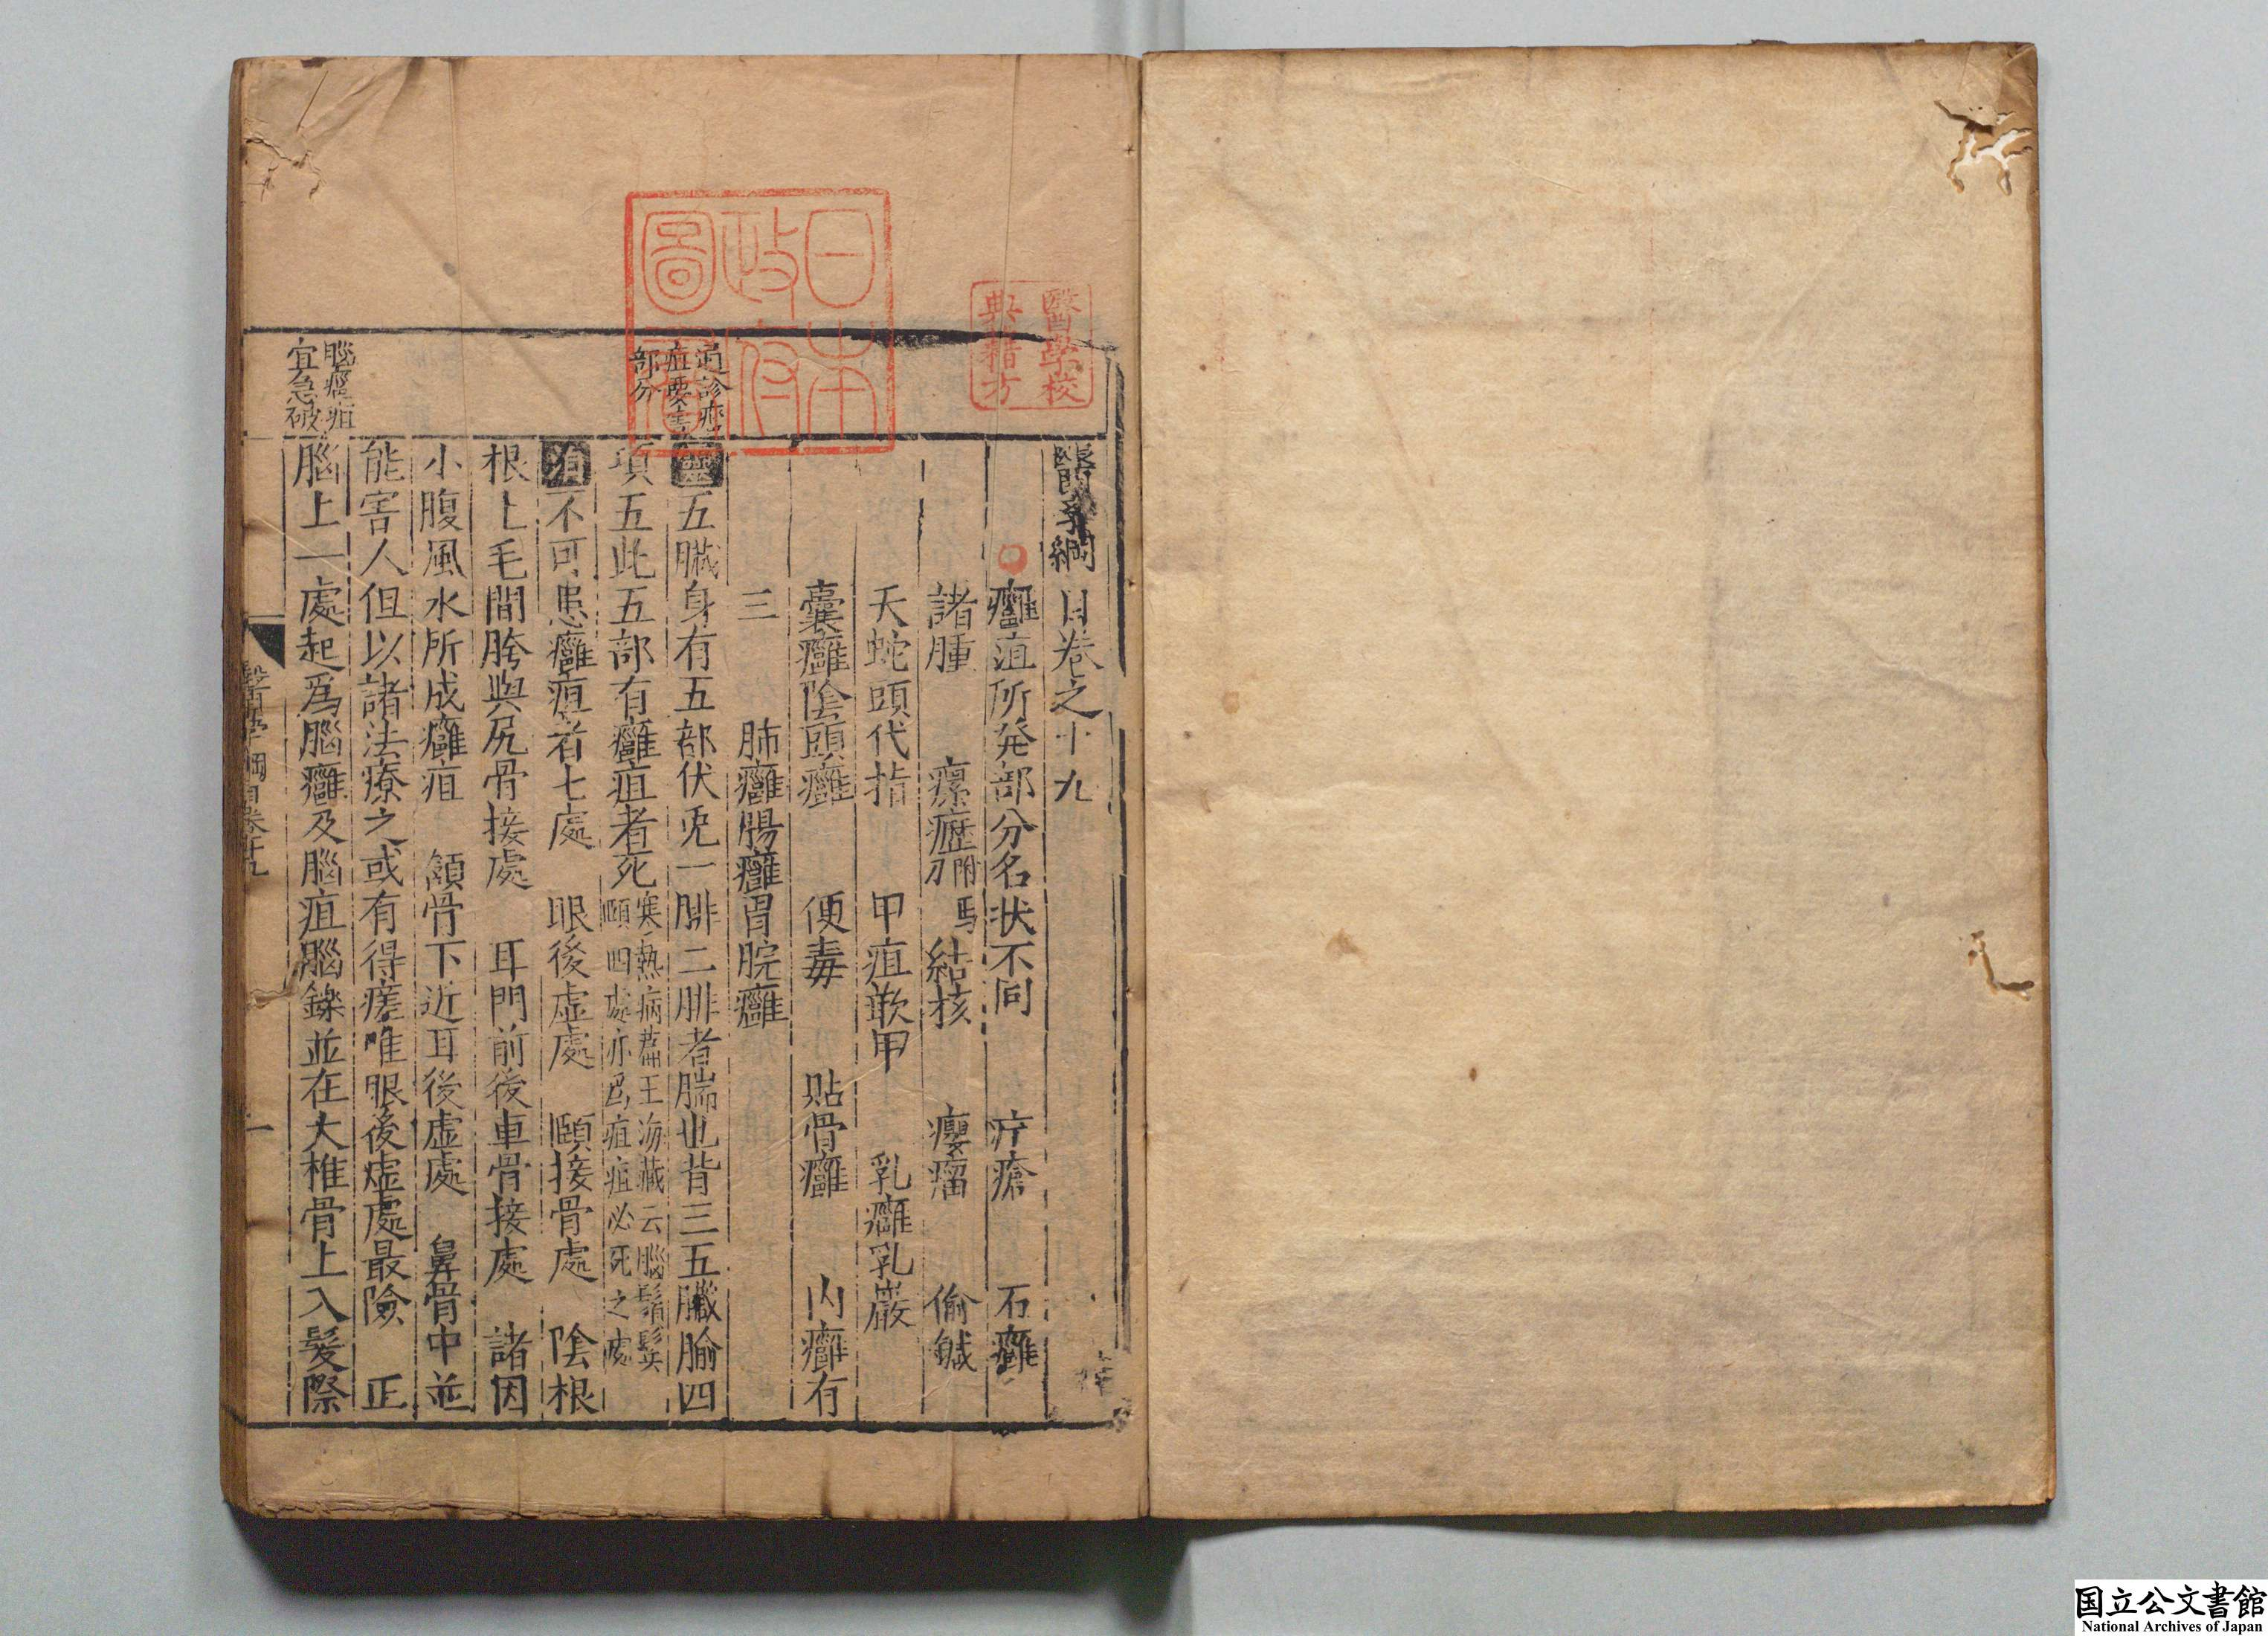 醫學綱目卷之十九
癰疽所発部分名状不同　疔瘡　石癰
諸腫　瘰癧附馬刀　結核　癭瘤　偷鍼
天蛇頭代指　甲疽嵌甲　乳癰乳巖
囊癰陰頭癰　便毒　貼骨癰　內癰有
三　肺癰腸癰胃脘癰
靈五臟身有五部伏兎一腓二腓者腨也背三五臟腧四
項五此五部有癰疽者死寒熱病篇王海藏云腦鬚鬢
頤四處亦爲疽疽必死之處
涓不可患癰疽者七處　眼後虛處　頤接骨處　陰根
根上毛間胯與尻骨接處　耳門前後車骨接處　諸因
小腹風水所成癰疽　頷骨下近耳後虛處　鼻骨中並
能害人但以諸法療之或有得瘥唯眼後虛處最險　正
腦上一處起爲腦癰及腦疽腦鑠並在大椎骨上入髮際
通診癰
疽要害
部分
腦癰疽
宜急破
醫學綱目卷十九
一
日本
政府
圖書
醫學校
典籍方
国立公文書館
National Archives of Japan